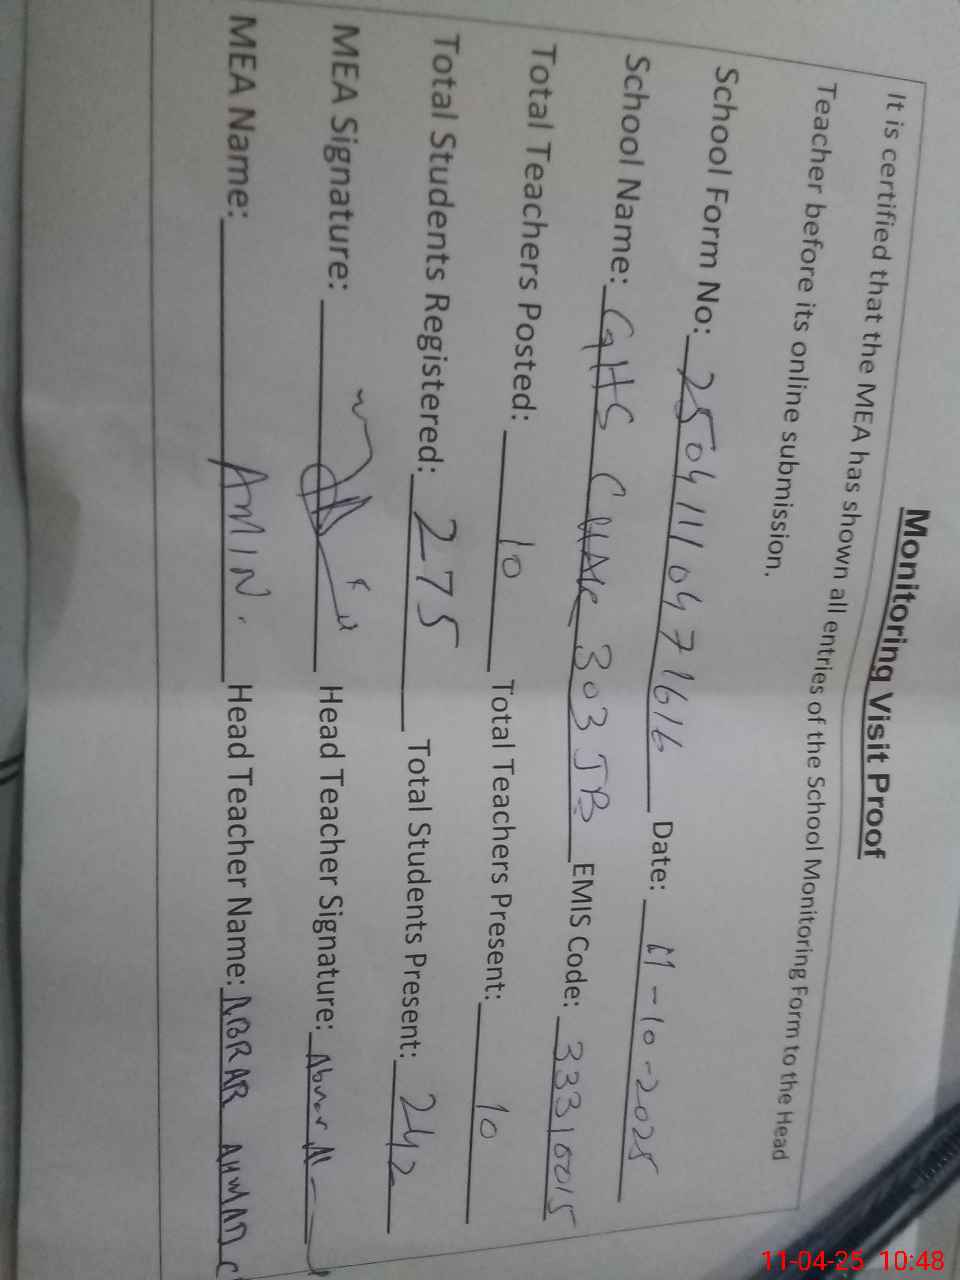 Monitoring Visit Proof
It is certified that the MEA has shown all entries of the School Monitoring Form to the Head
Teacher before its online submission.
School Form No: 25041110471616 Date: 11-10-2025
School Name: GHS CHAK 303 JB EMIS Code: 33310015
Total Teachers Posted: 10 Total Teachers Present: 10
Total Students Registered: 275 Total Students Present: 242
MEA Signature: Head Teacher Signature: Abrar
MEA Name: AMIN. Head Teacher Name: ABRAR AHMAD
11-04-25 10:48